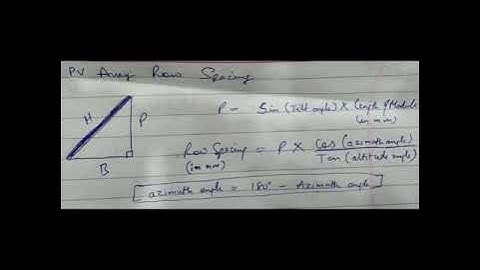 PV Array Row Spacing
H
P
B
P = Sin (Tilt angle) × Length of Module
(in mm)
Row Spacing = P × Cos (azimuth angle)
(in mm)
Tan (altitude angle)
[azimuth angle = 180° - Azimuth angle]